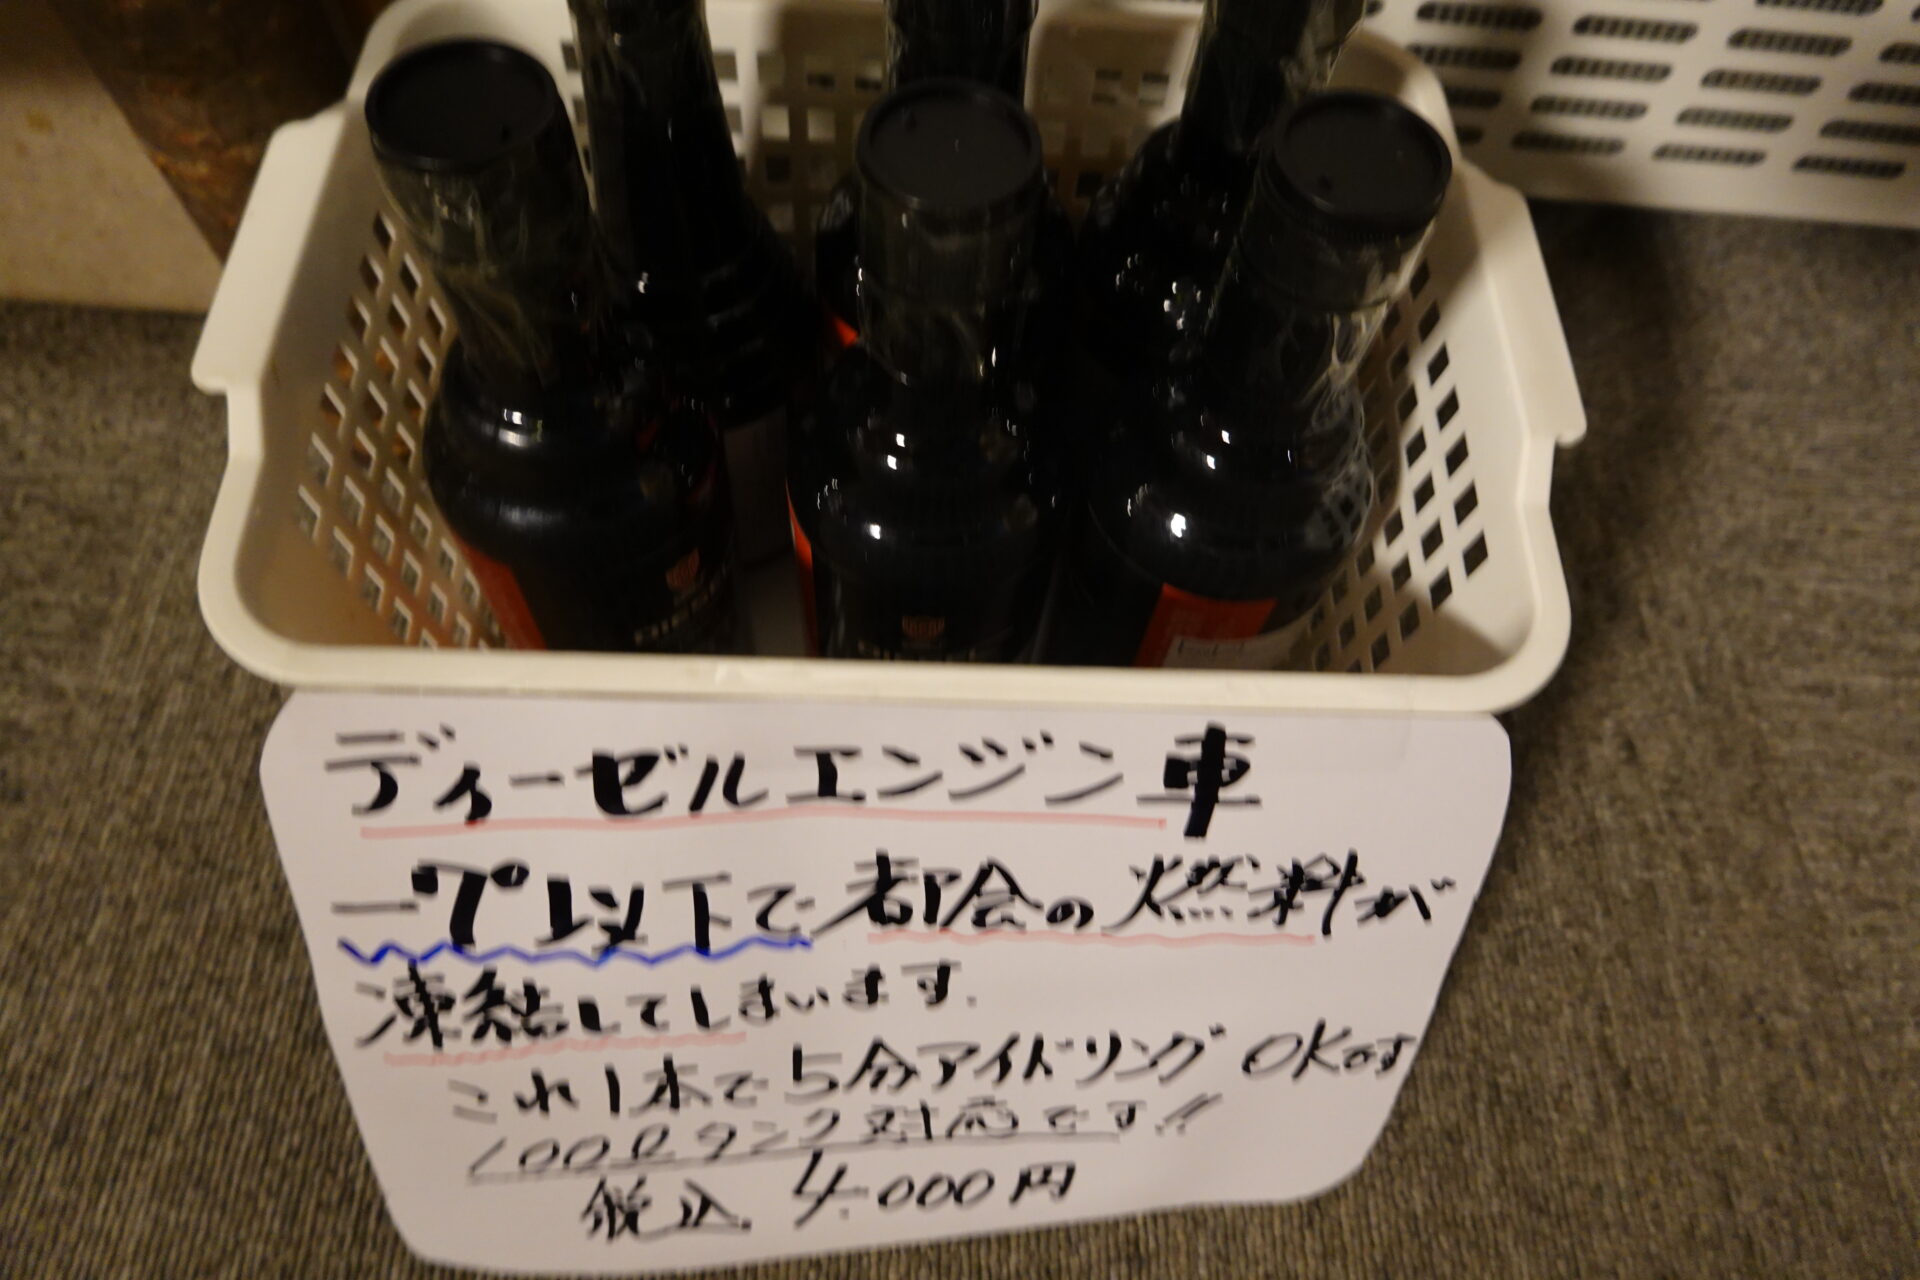 DIESEL
DIESEL
ディーゼルエンジン車
-7°以下で都会の燃料が
凍結してしまいます.
これ1本で5分アイドリングOKです
100ℓタンク対応です!!
税込 4.000円